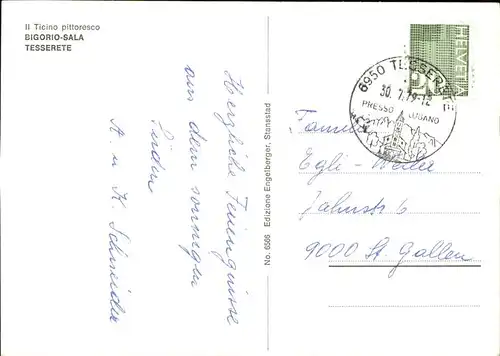 Il Ticino pittoresco
BIGORIO-SALA
TESSERETE
Herzliche Feriengrüsse
aus dem sonnigen
Süden
A. u K. Schneider
No. 6586 Edizione Engelberger, Stansstad
HELVETIA
6950 TESSERETE
30.7.79-12
PRESSO LUGANO
Familie
Egli-
Jahnstr 6
9000 St. Gallen